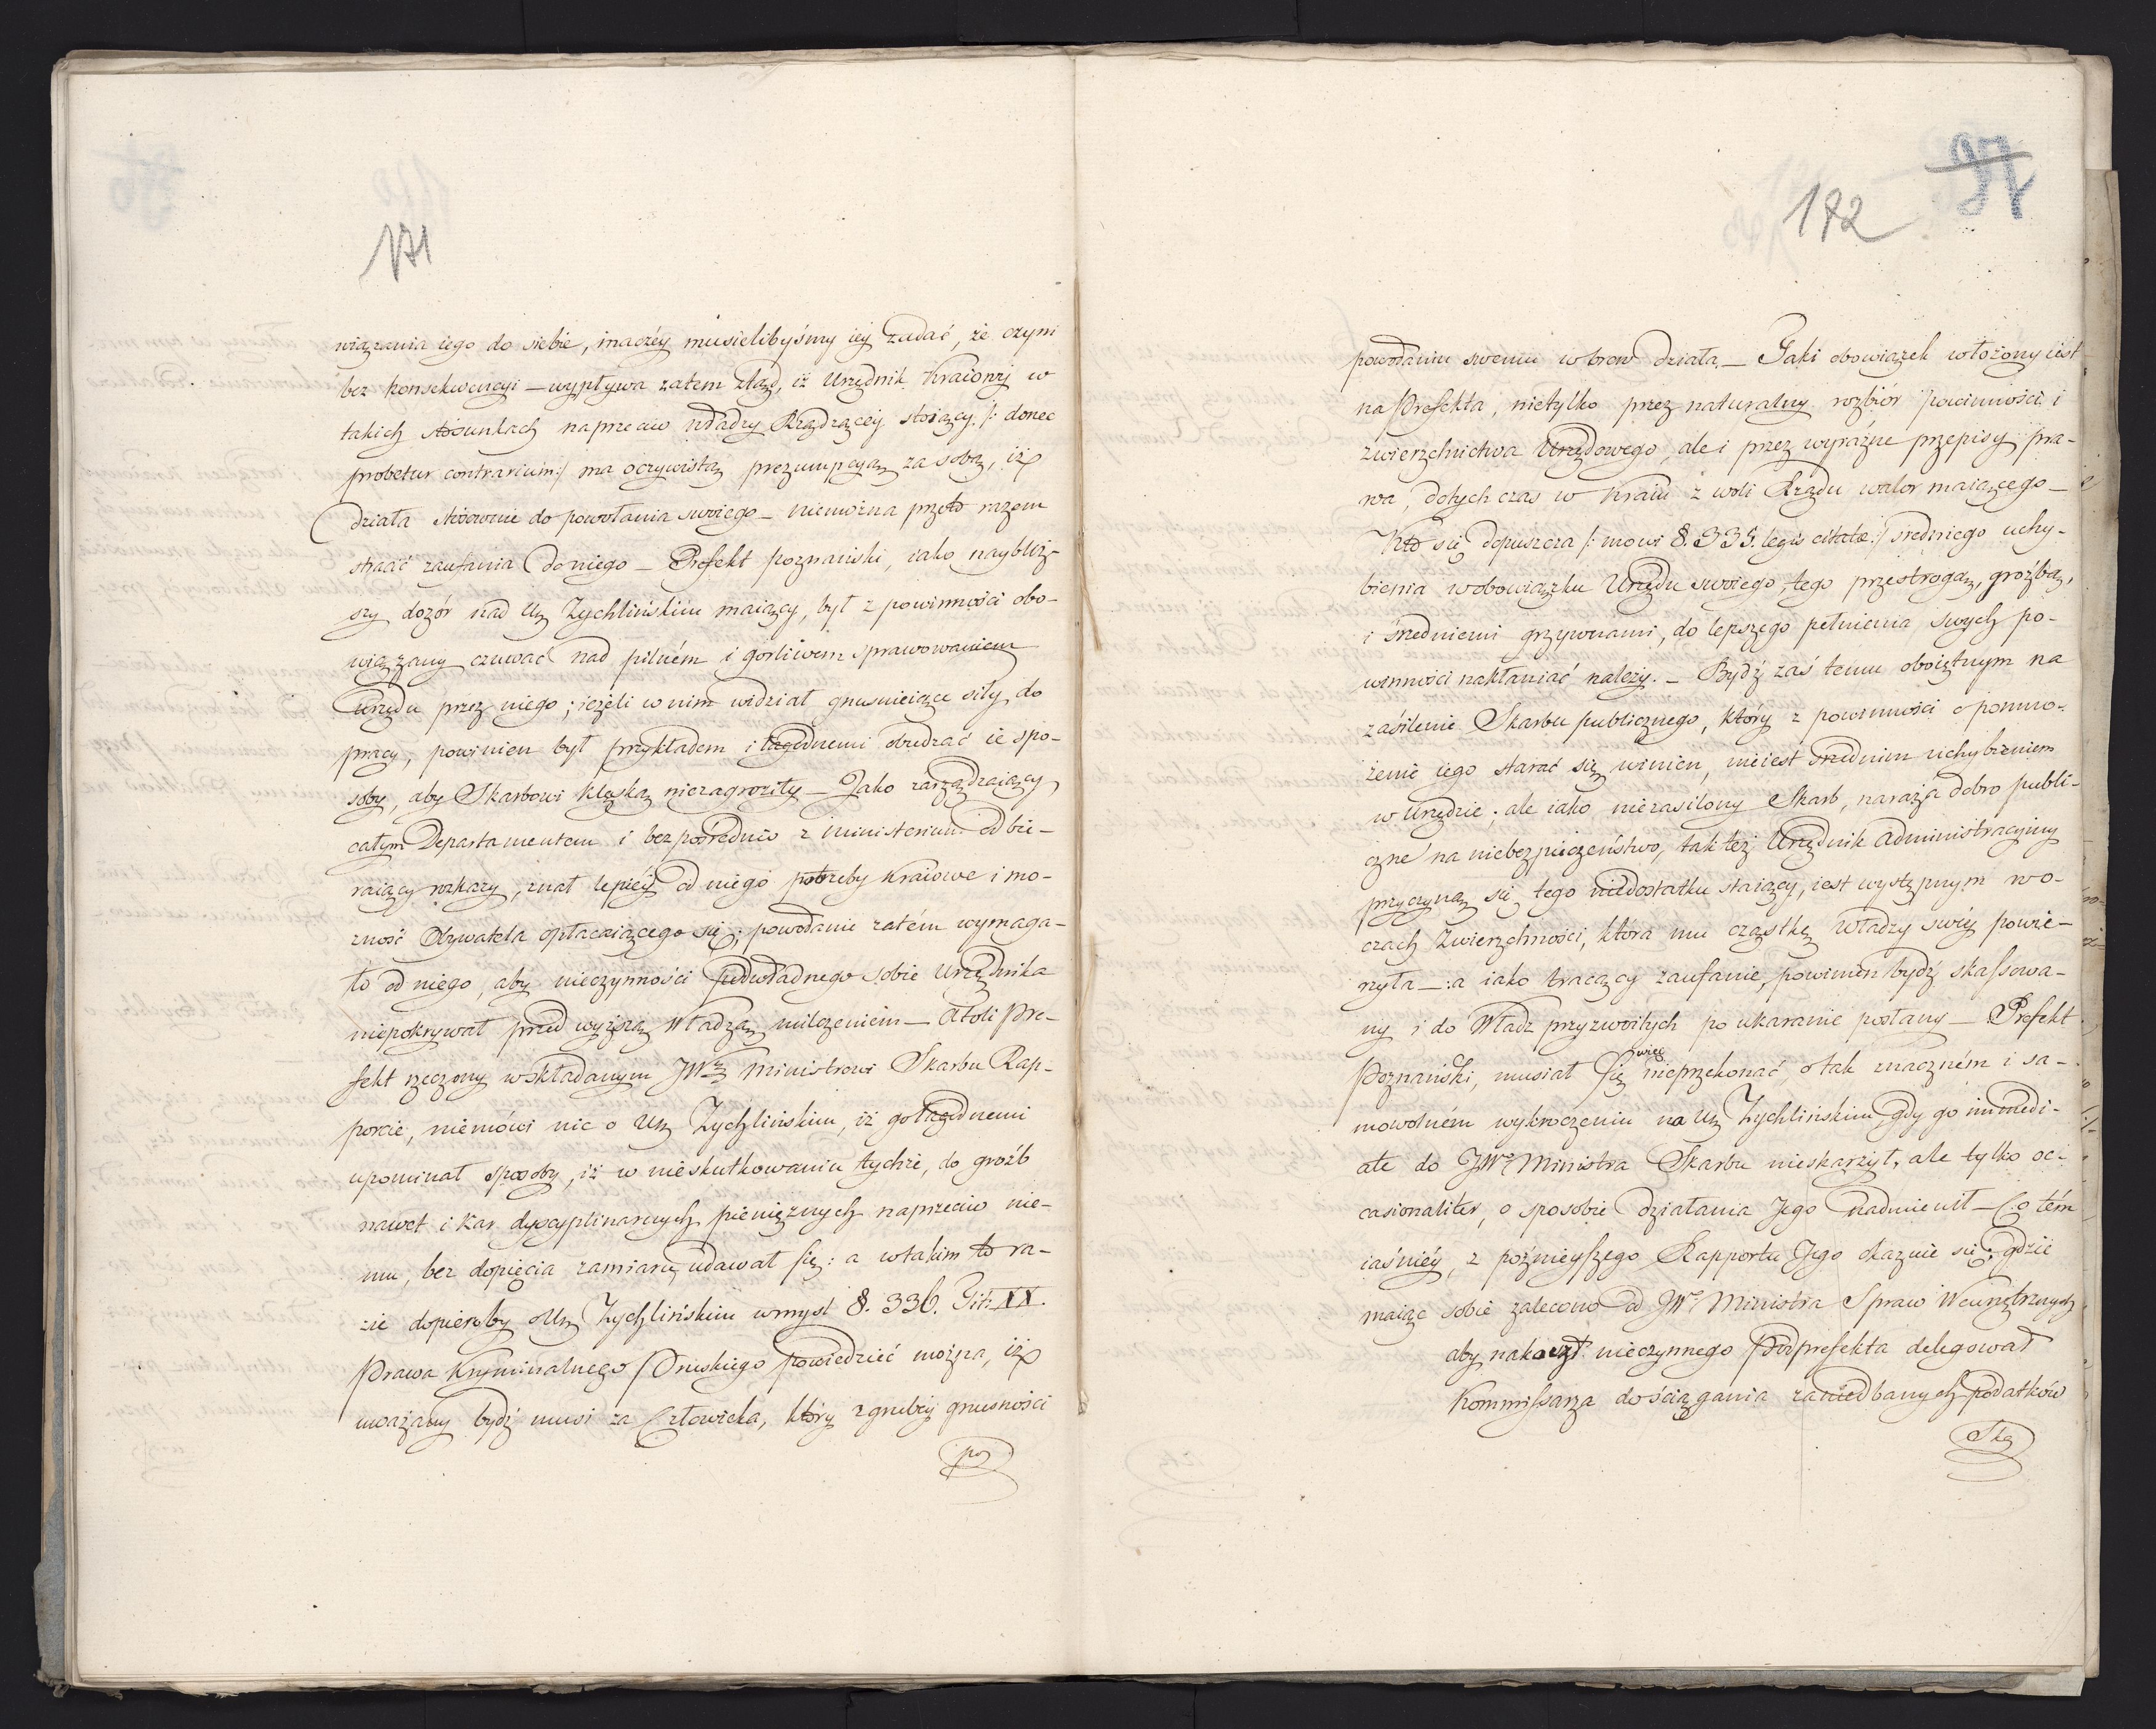 171
wiązania iego do siebie, inaczéy musielibyśmy iey zadać, że czyni
bez konsekwencyi — wypływa zatem ztąd, iż Urzędnik Kraiowy w
takich stosunkach naprzeciw władzy Rządzącey stoiący /: donec
probetur contrarium:/ ma oczywistą prezumpcyą za sobą, iż
działa stosownie do powołania swoiego — niemożna przeto razem
stracić zaufania do niego — Prefekt poznański, iako naybliż-
szy dozór nad Ur Zychlińskim maiący, był z powinności obo-
wiązany czuwać nad pilném i gorliwem sprawowaniem
Urzędu przez niego; ieżeli w nim widział gnuśnieiące siły do
pracy, powinien był przykładem i łagodnemi obudzać ie spo-
soby, aby Skarbowi klęską niezagroziły — Jako zarządzaiący
całym Departamentem i bezpośrednio z Ministerium odbie-
raiący rozkazy, znał lepiéy od niego potrzeby kraiowe i mo-
żność Obywatela opłacaiącego się; powołanie zatém wymaga-
ło od niego, aby nieczynności podwładnego sobie Urzędnika
niepokrywał przed wyższą Władzą milczeniem — Atoli Pre-
fekt rzeczony w składanym JWu Ministrowi Skarbu Rap-
porcie, niemówi nic o Ur Zychlińskim, iż go łagodnemi
upominał sposoby, iż w nieskutkowaniu tychże, do gróźb
nawet i kar dyscyplinarnych pieniężnych naprzeciw nie-
mu, bez dopięcia zamiaru udawał się: a w takim to ra-
zie dopieroby o Ur Zychlińskim w myśl §. 336. Tit: XX.
Prawa Kryminalnego Pruskiego powiedzieć można, iż
uważany bydź musi za Człowieka, który z grubéy gnusności
po
97
172
powołaniu swemu wbrew działa. — Taki obowiązek włożony iest
na Prefekta, nietylko przez naturalny rozbiór powinności i
zwierzchnictwa Urzędowego, ale i przez wyraźne przepisy pra-
wa, dotych czas w kraiu z woli Rządu walor maiącego —
Kto się dopuszcza /: mowi §. 335. legis citatæ:/ sredniego uchy-
bienia w obowiązku Urzędu swoiego, tego przestrogą, groźbą,
i średniemi grzywnami, do lepszego pełnienia swych po-
winności nakłaniać należy. — Bydź zaś temu oboiętnym na
zasilenie Skarbu publicznego, który z powinności o pomno-
żenie iego starać się winien, nieiest średnim uchybieniem
w Urzędzie; ale iako niezasilony Skarb, naraża dobro publi-
czne na niebezpieczeństwo, tak też Urzędnik administracyiny
przyczyną się tego niedostatku staiący, iest występnym w o-
czach Zwierzchności, która mu cząstkę Władzy swéy powie-
rzyła —: a iako tracący zaufanie, powinien bydź skassowa-
ny i do Władz przyzwoitych po ukaranie posłany — Prefekt
Poznański, musiał się więc nieprzekonać, o tak znaczném i sa-
mowolném wykroczeniu na Ur Zychlińskim, gdy go immedi-
ate do JWo Ministra Skarbu nieskarżył, ale tylko oc-
casionaliter, o sposobie działania Jego nadmienił — Co tém
iaśniéy, z poźnieyszego Rapportu Jego okazuie się; gdzie
maiąc sobie zalecono od JWo Ministra Spraw Wewnętrznych
aby na koszt nieczynnego Podprefekta delegował
Kommissarza do ściągania zaniedbanych podatków
Ską